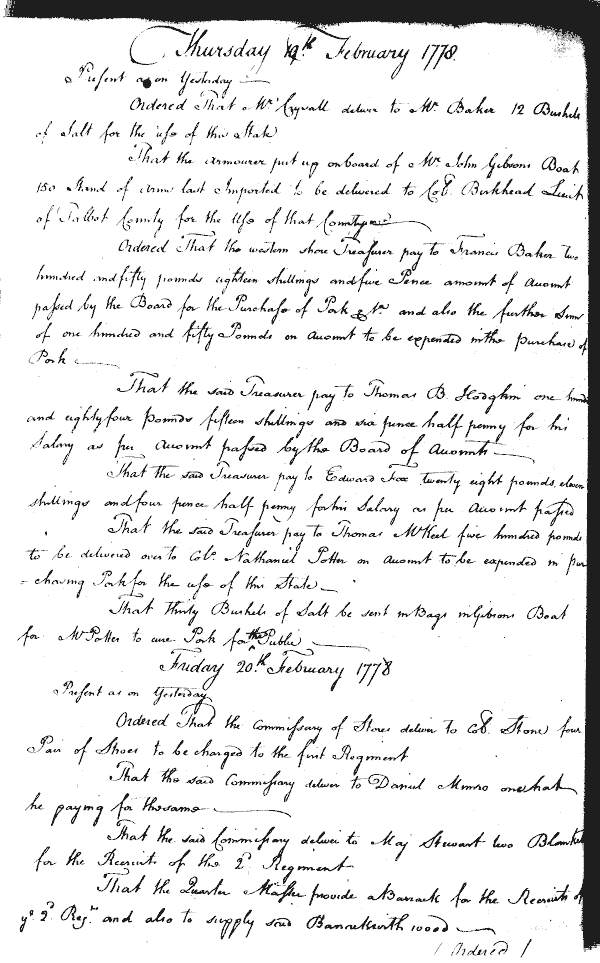 Thursday 19th February 1778.
Present as on Yesterday —
Ordered That Mr Cryvall deliver to Mr Baker 12 Bushels
of Salt for the use of this State
That the armourer put up on board of Mr John Gibsons Boat
150 Stand of arms last Imported to be delivered to Col. Birkhead Lieut
of Talbot County for the Use of that County —
Ordered That the western shore Treasurer pay to Francis Baker two
hundred and fifty pounds eighteen shillings and five Pence amount of Account
passed by the Board for the Purchase of Pork &c. and also the further Sum
of one hundred and fifty Pounds on Account to be expended in the purchase of
Pork —
That the said Treasurer pay to Thomas B. Hodgkin one hund
and eighty four pounds fifteen shillings and six pence half penny for his
Salary as per Account passed by the Board of Accounts —
That the said Treasurer pay to Edward Fox twenty eight pounds eleven
shillings and four pence half penny for his Salary as per Account passed
That the said Treasurer pay to Thomas McKeel five hundred pounds
to be delivered over to Colo. Nathaniel Potter on Account to be expended in pur
- chasing Pork for the use of this State —
That thirty Bushels of Salt be sent in Bags in Gibsons Boat
for Mr Potter to cure Pork for the Public —
Friday 20th February 1778
Present as on Yesterday
Ordered That the Commissary of Stores deliver to Col. Stone four
Pair of Shoes to be charged to the first Regiment
That the said Commissary deliver to Daniel Munro one hat
he paying for the same —
That the said Commissary deliver to Maj Stewart two Blankets
for the Recruits of the 2d Regiment
That the Quarter Master provide a Barrack for the Recruits of
ye 2d Regt. and also to supply said Barrack with wood —
/ Ordered /